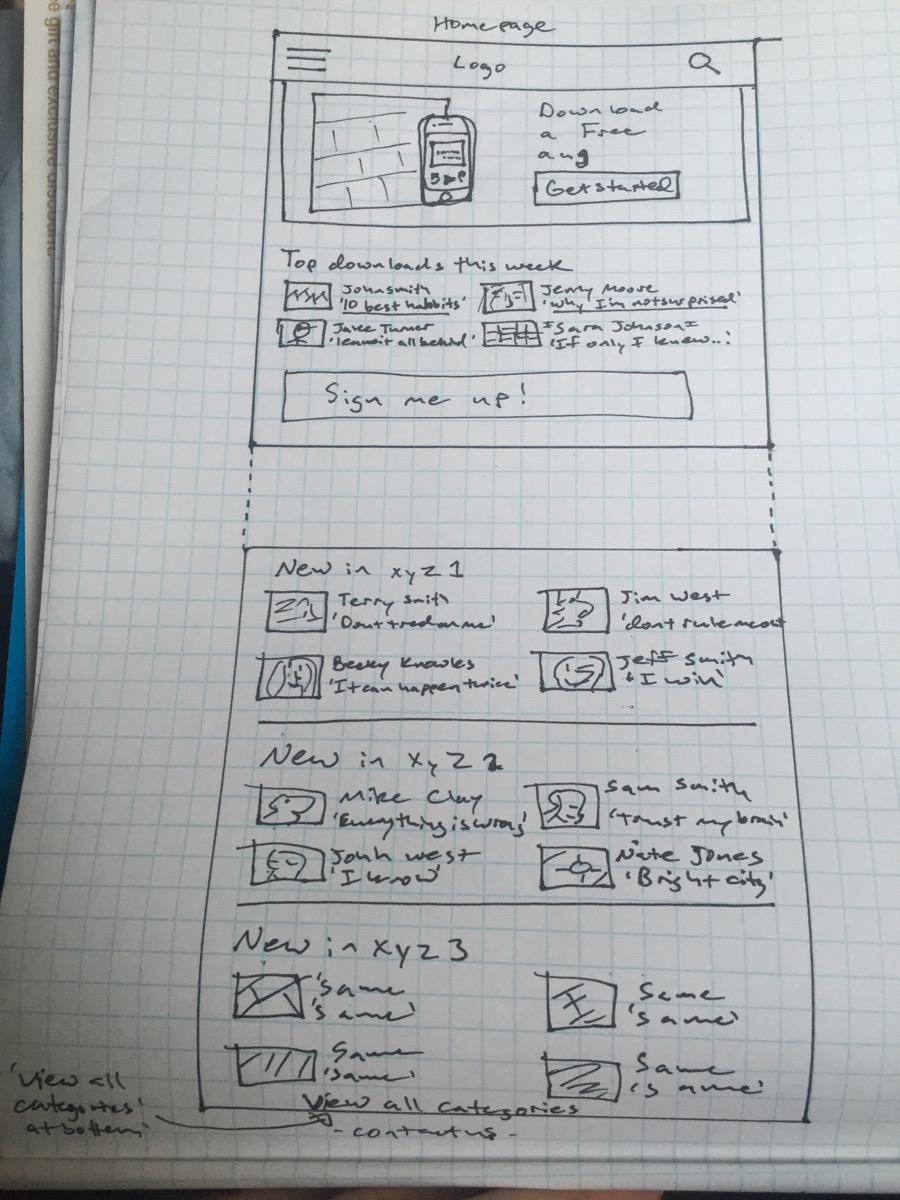 Homepage
Logo
Download
a Free
aug
Get started
Top downloads this week
John smith
'10 best habbits'
Jenny Moore
'why I'm not surprised'
Jake Turner
'leave it all behind'
Sara Johnson
'If only I knew...'
Sign me up!
New in xyz 1
Terry Smith
'Dont tred on me'
Jim West
'dont rule me out
Becky Knowles
'It can happen twice'
Jeff Smith
'I win'
New in xyz 2
Mike Clay
'Everything is wrong'
Sam Smith
'trust my brain'
Jonh west
'I know'
Nate Jones
'Bright city'
New in xyz 3
'Same
'same'
Same
'same'
Same
'same'
Same
'same'
'View all
categories'
at bottem
View all categories
- contact us -
e gift and exclusive discount.